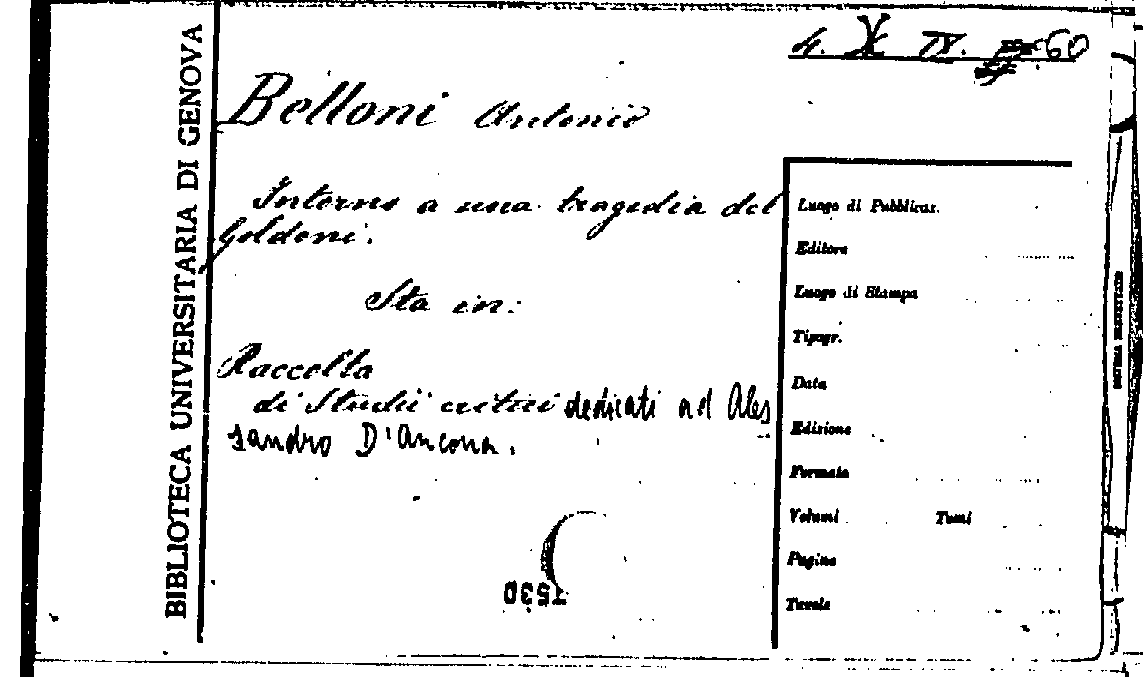 BIBLIOTECA UNIVERSITARIA DI GENOVA
4. X IV. 60
Belloni Antonio
Intorno a una tragedia del
Goldoni.
Sta in:
Raccolta
di Studii critici dedicati ad Ales
sandro D'Ancona.
7530
Luogo di Pubblicaz.
Editore
Luogo di Stampa
Tipogr.
Data
Edizione
Formato
Volumi Tomi
Pagine
Tavole